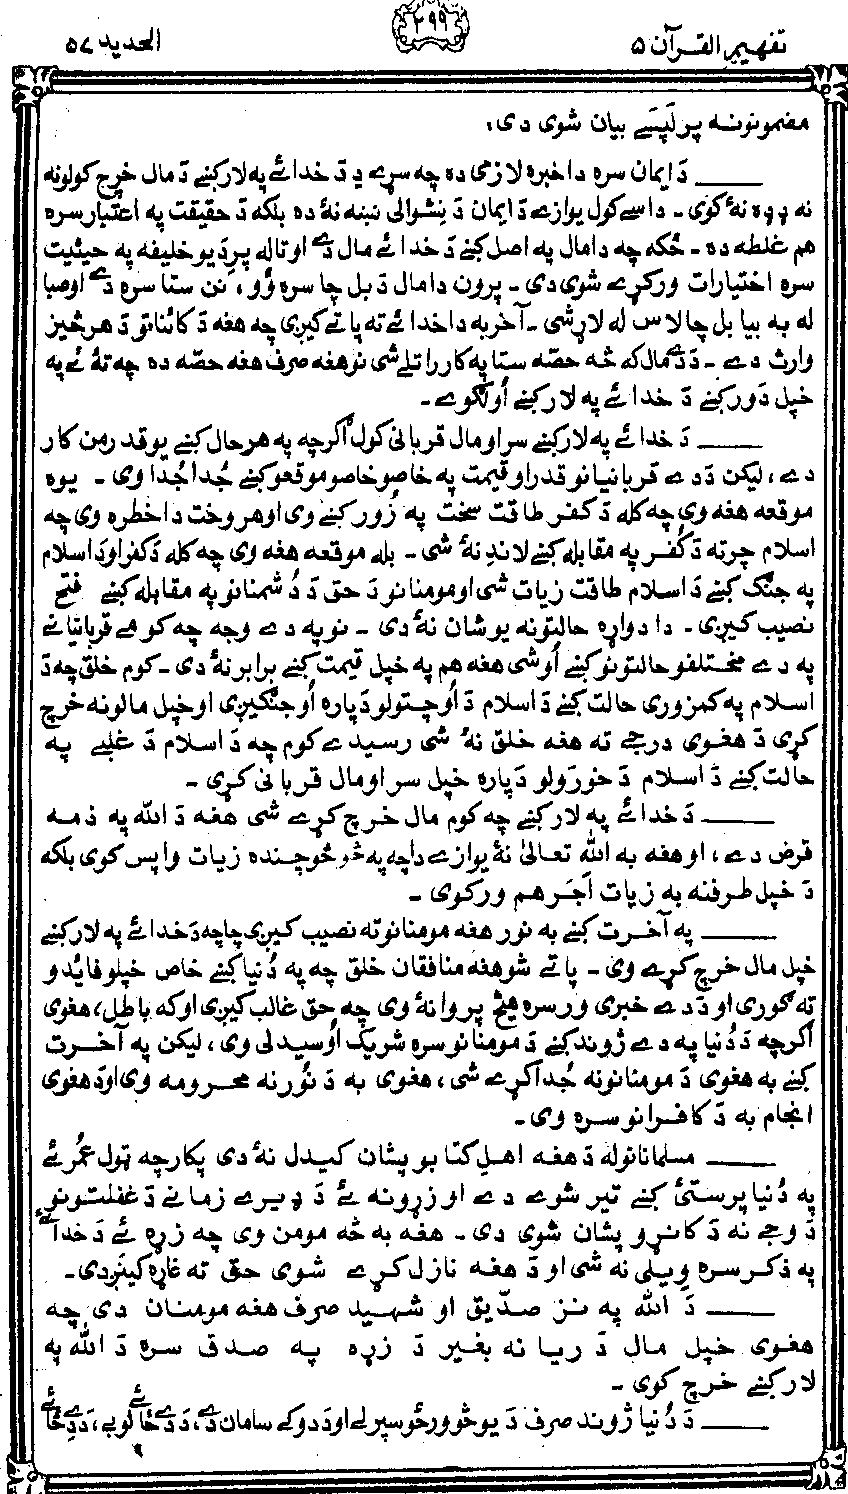 تفهیم القرآن ۵
۲۹۹
الحدید ۵۷
مضمونونه پرلَپسے بیان شوی دی؛
ــــ دَ ایمان سره دا خبره لازمی ده چه سړے دِ دَ خدائے په لارکښے دَ مال خرچ کولونه
نه ډډه نۀ کوی۔ داسے کول یوازے دَ ایمان دَ نِشوالی نښه نۀ ده بلکه دَ حقیقت په اعتبار سره
هم غلطه ده۔ ځکه چه دا مال په اصل کښے دَ خدائے مال دے او تاله پرِ دِ یو خلیفه په حیثیت
سره اختیارات ورکړے شوی دی۔ پرون دا مال دَ بل چا سره وُو، نن ستا سره دے او صبا
له به بیا بل چا لاس له لارشی۔ آخر به دا خدائے ته پاتے کیږی چه هغه دَ کائناتو دَ هر څیز
وارث دے۔ دَ دے مال که څه حصّه ستا په کار راتلے شی نو هغه صرف هغه حصّه ده چه تۀ ئے په
خپل دَور کښے دَ خدائے په لار کښے اُولګوے۔
ــــ دَ خدائے په لار کښے سر او مال قربانی کول اګرچه په هر حال کښے یو قدرمن کار
دے، لیکن دَ دے قربانیانو قدر او قیمت په خاصو خاصو موقعو کښے جُدا جُدا وی۔ یوه
موقعه هغه وی چه کله دَ کفر طاقت سخت په زُور کښے وی او هر وخت دا خطره وی چه
اسلام چرته دَ کُفر په مقابله کښے لاندِ نۀ شی۔ بله موقعه هغه وی چه کله دَ کفر او دَ اسلام
په جنګ کښے دَ اسلام طاقت زیات شی او مومنانو دَ حق دَ دُشمنانو په مقابله کښے فتح
نصیب کیږی۔ دا دواړه حالتونه یو شان نۀ دی۔ نو په دے وجه چه کومے قربانیانے
په دے مختلفو حالتونو کښے اُوشی هغه هم په خپل قیمت کښے برابر نۀ دی۔ کوم خلق چه دَ
اسلام په کمزوری حالت کښے دَ اسلام دَ اُوچتولو دَپاره اُوجنګیږی او خپل مالونه خرچ
کړی دَ هغوی درجے ته هغه خلق نۀ شی رسیدے کوم چه دَ اسلام دَ غلبے په
حالت کښے دَ اسلام دَ خورَولو دَپاره خپل سر او مال قربانی کړی۔
ــــ دَ خدائے په لار کښے چه کوم مال خرچ کړے شی هغه دَ الله په ذمه
قرض دے، او هغه به الله تعالیٰ نۀ یوازے دا چه په څو څو چنده زیات واپس کوی بلکه
دَ خپل طرفنه به زیات اَجَر هم ورکوی۔
ــــ په آخرت کښے به نور هغه مومنانو ته نصیب کیږی چا چه دَ خدائے په لار کښے
خپل مال خرچ کړے وی۔ پاتے شو هغه منافقان خلق چه په دُنیا کښے خاص خپلو فائدو
ته ګوری او دَ دے خبری ورسره هیڅ پروا نۀ وی چه حق غالب کیږی او که باطل، هغوی
اګرچه دَ دُنیا په دے ژوند کښے دَ مومنانو سره شریک اُوسیدلی وی، لیکن په آخرت
کښے به هغوی دَ مومنانونه جُدا کړے شی، هغوی به دَ نُور نه محرومه وی او دَ هغوی
انجام به دَ کافرانو سره وی۔
ــــ مسلمانانو له دَ هغه اهلِ کتابو پشان کیدل نۀ دی پکار چه ټول عُمر ئے
په دُنیا پرستئ کښے تیر شوے دے او زړونه ئے دَ ډیرے زمانے دَ غفلتونو
دَ وجے نه دَ کانړو پشان شوی دی۔ هغه به څه مومن وی چه زړه ئے دَ خدائے
په ذکر سره وِیلی نه شی او دَ هغه نازل کړے شوی حق ته غاړه کینږدی۔
ــــ دَ الله په نزد صدّیق او شهید صرف هغه مومنان دی چه
هغوی خپل مال دَ ریا نه بغیر دَ زړه په صدق سره دَ الله په
لار کښے خرچ کوی۔
ــــ دَ دُنیا ژوند صرف دَ یو څو ورځو سپرلے او دَ دوکے سامان دے، دَ دے ځائے لوبے، دَ دے ځائے